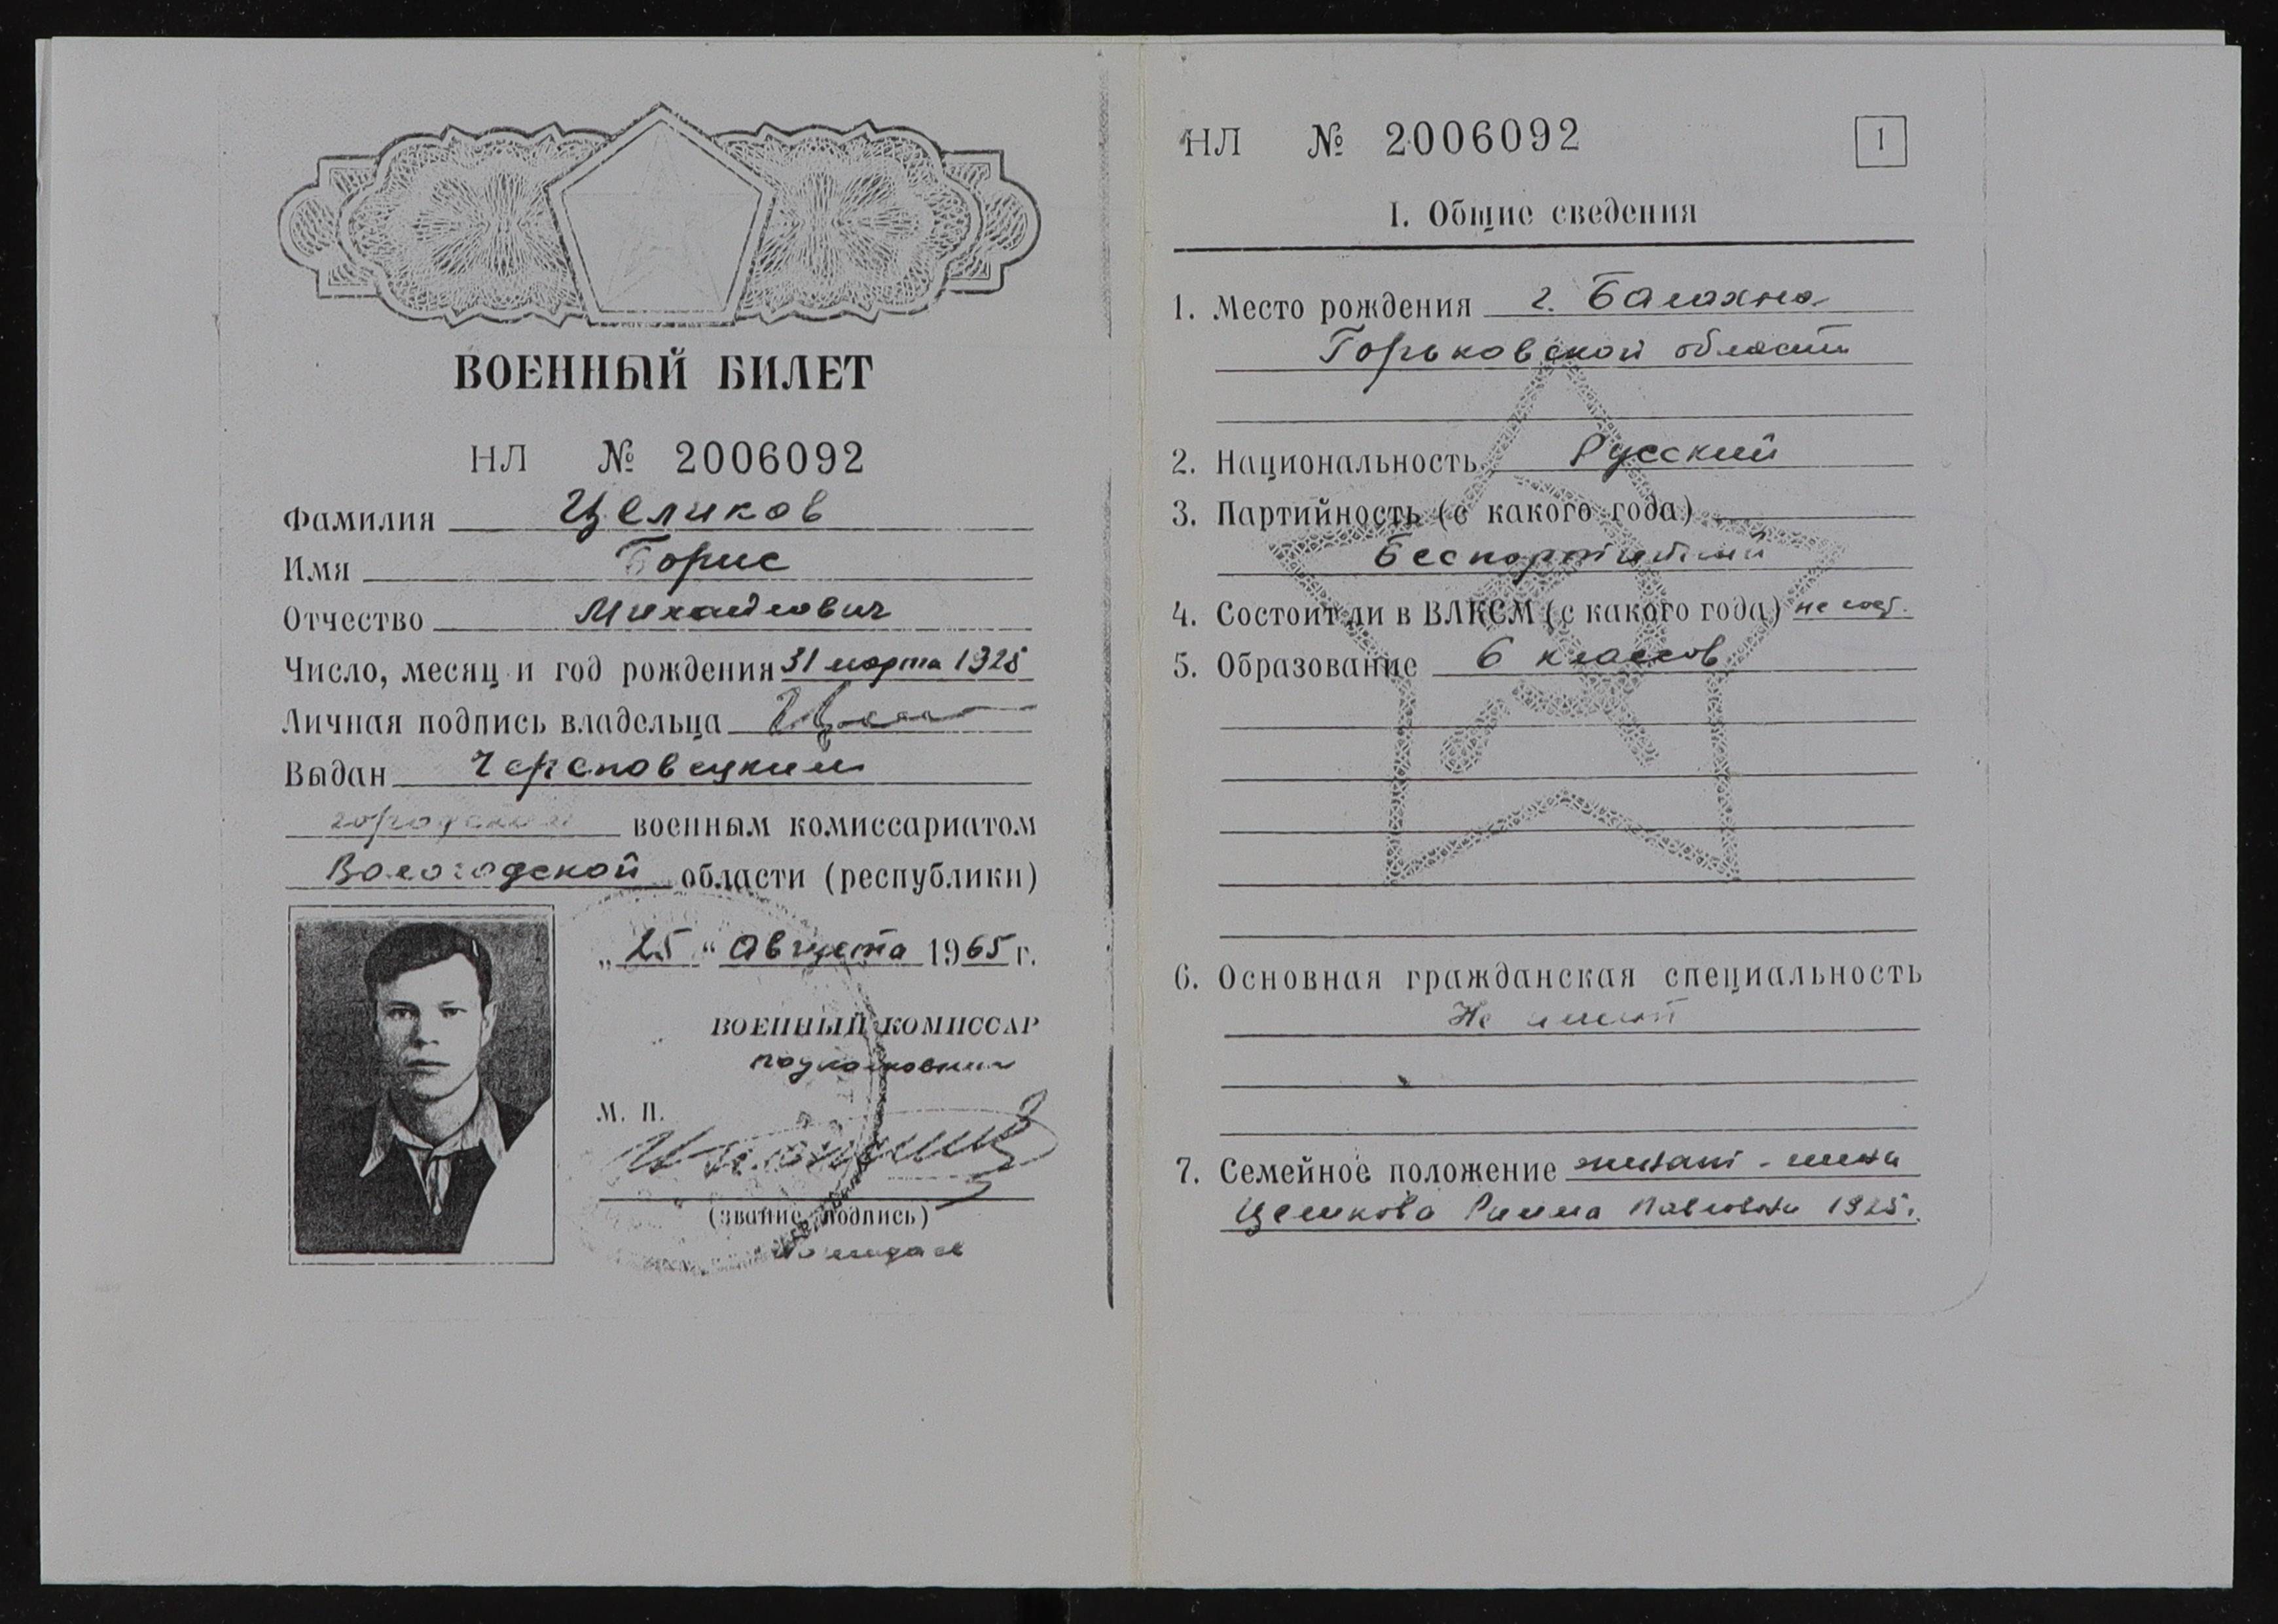 ВОЕННЫЙ БИЛЕТ
НЛ № 2006092
Фамилия Целиков
Имя Борис
Отчество Михайлович
Число, месяц и год рождения 31 марта 1925
Личная подпись владельца
Выдан Череповецким
городским военным комиссариатом
Вологодской области (республики)
„25“ Августа 1965 г.
ВОЕННЫЙ КОМИССАР
подполковник
М. П.
(звание, подпись)
НЛ № 2006092
1
I. Общие сведения
1. Место рождения г. Балахна
Горьковской области
2. Национальность Русский
3. Партийность (с какого года)
Беспартийный
4. Состоит ли в ВЛКСМ (с какого года) не сост.
5. Образование 6 классов
6. Основная гражданская специальность
Не имеет
7. Семейное положение женат - жена
Целикова Римма Павловна 1925г.